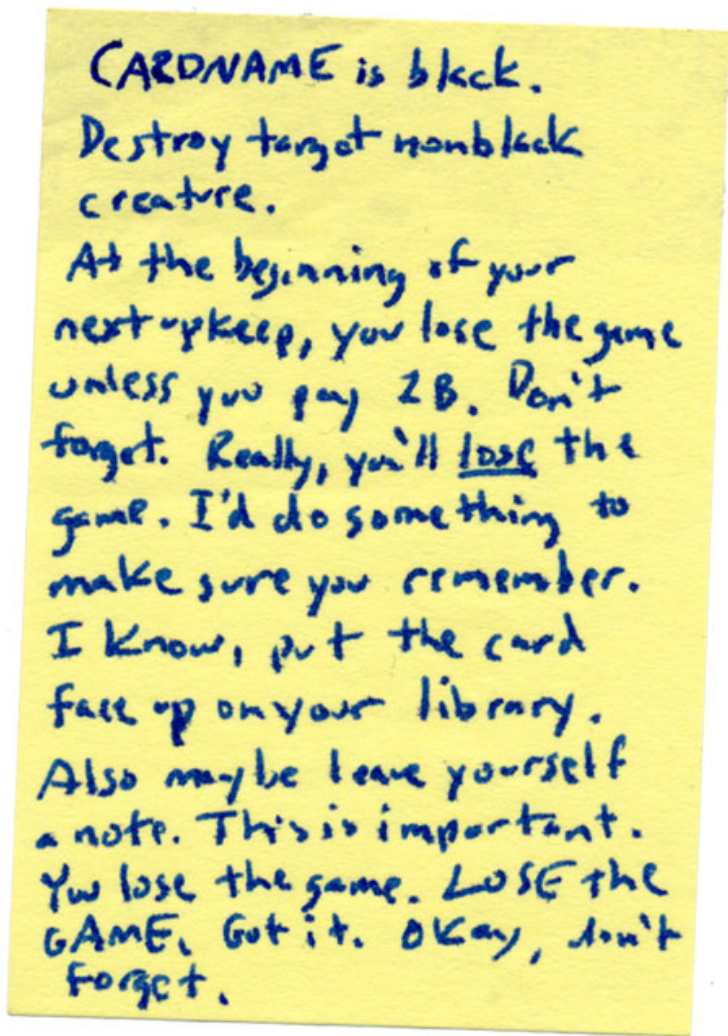 CARDNAME is black.
Destroy target nonblack
creature.
At the beginning of your
next upkeep, you lose the game
unless you pay 2B. Don't
forget. Really, you'll lose the
game. I'd do something to
make sure you remember.
I know, put the card
face up on your library.
Also maybe leave yourself
a note. This is important.
You lose the game. LOSE the
GAME. Got it. Okay, don't
forget.